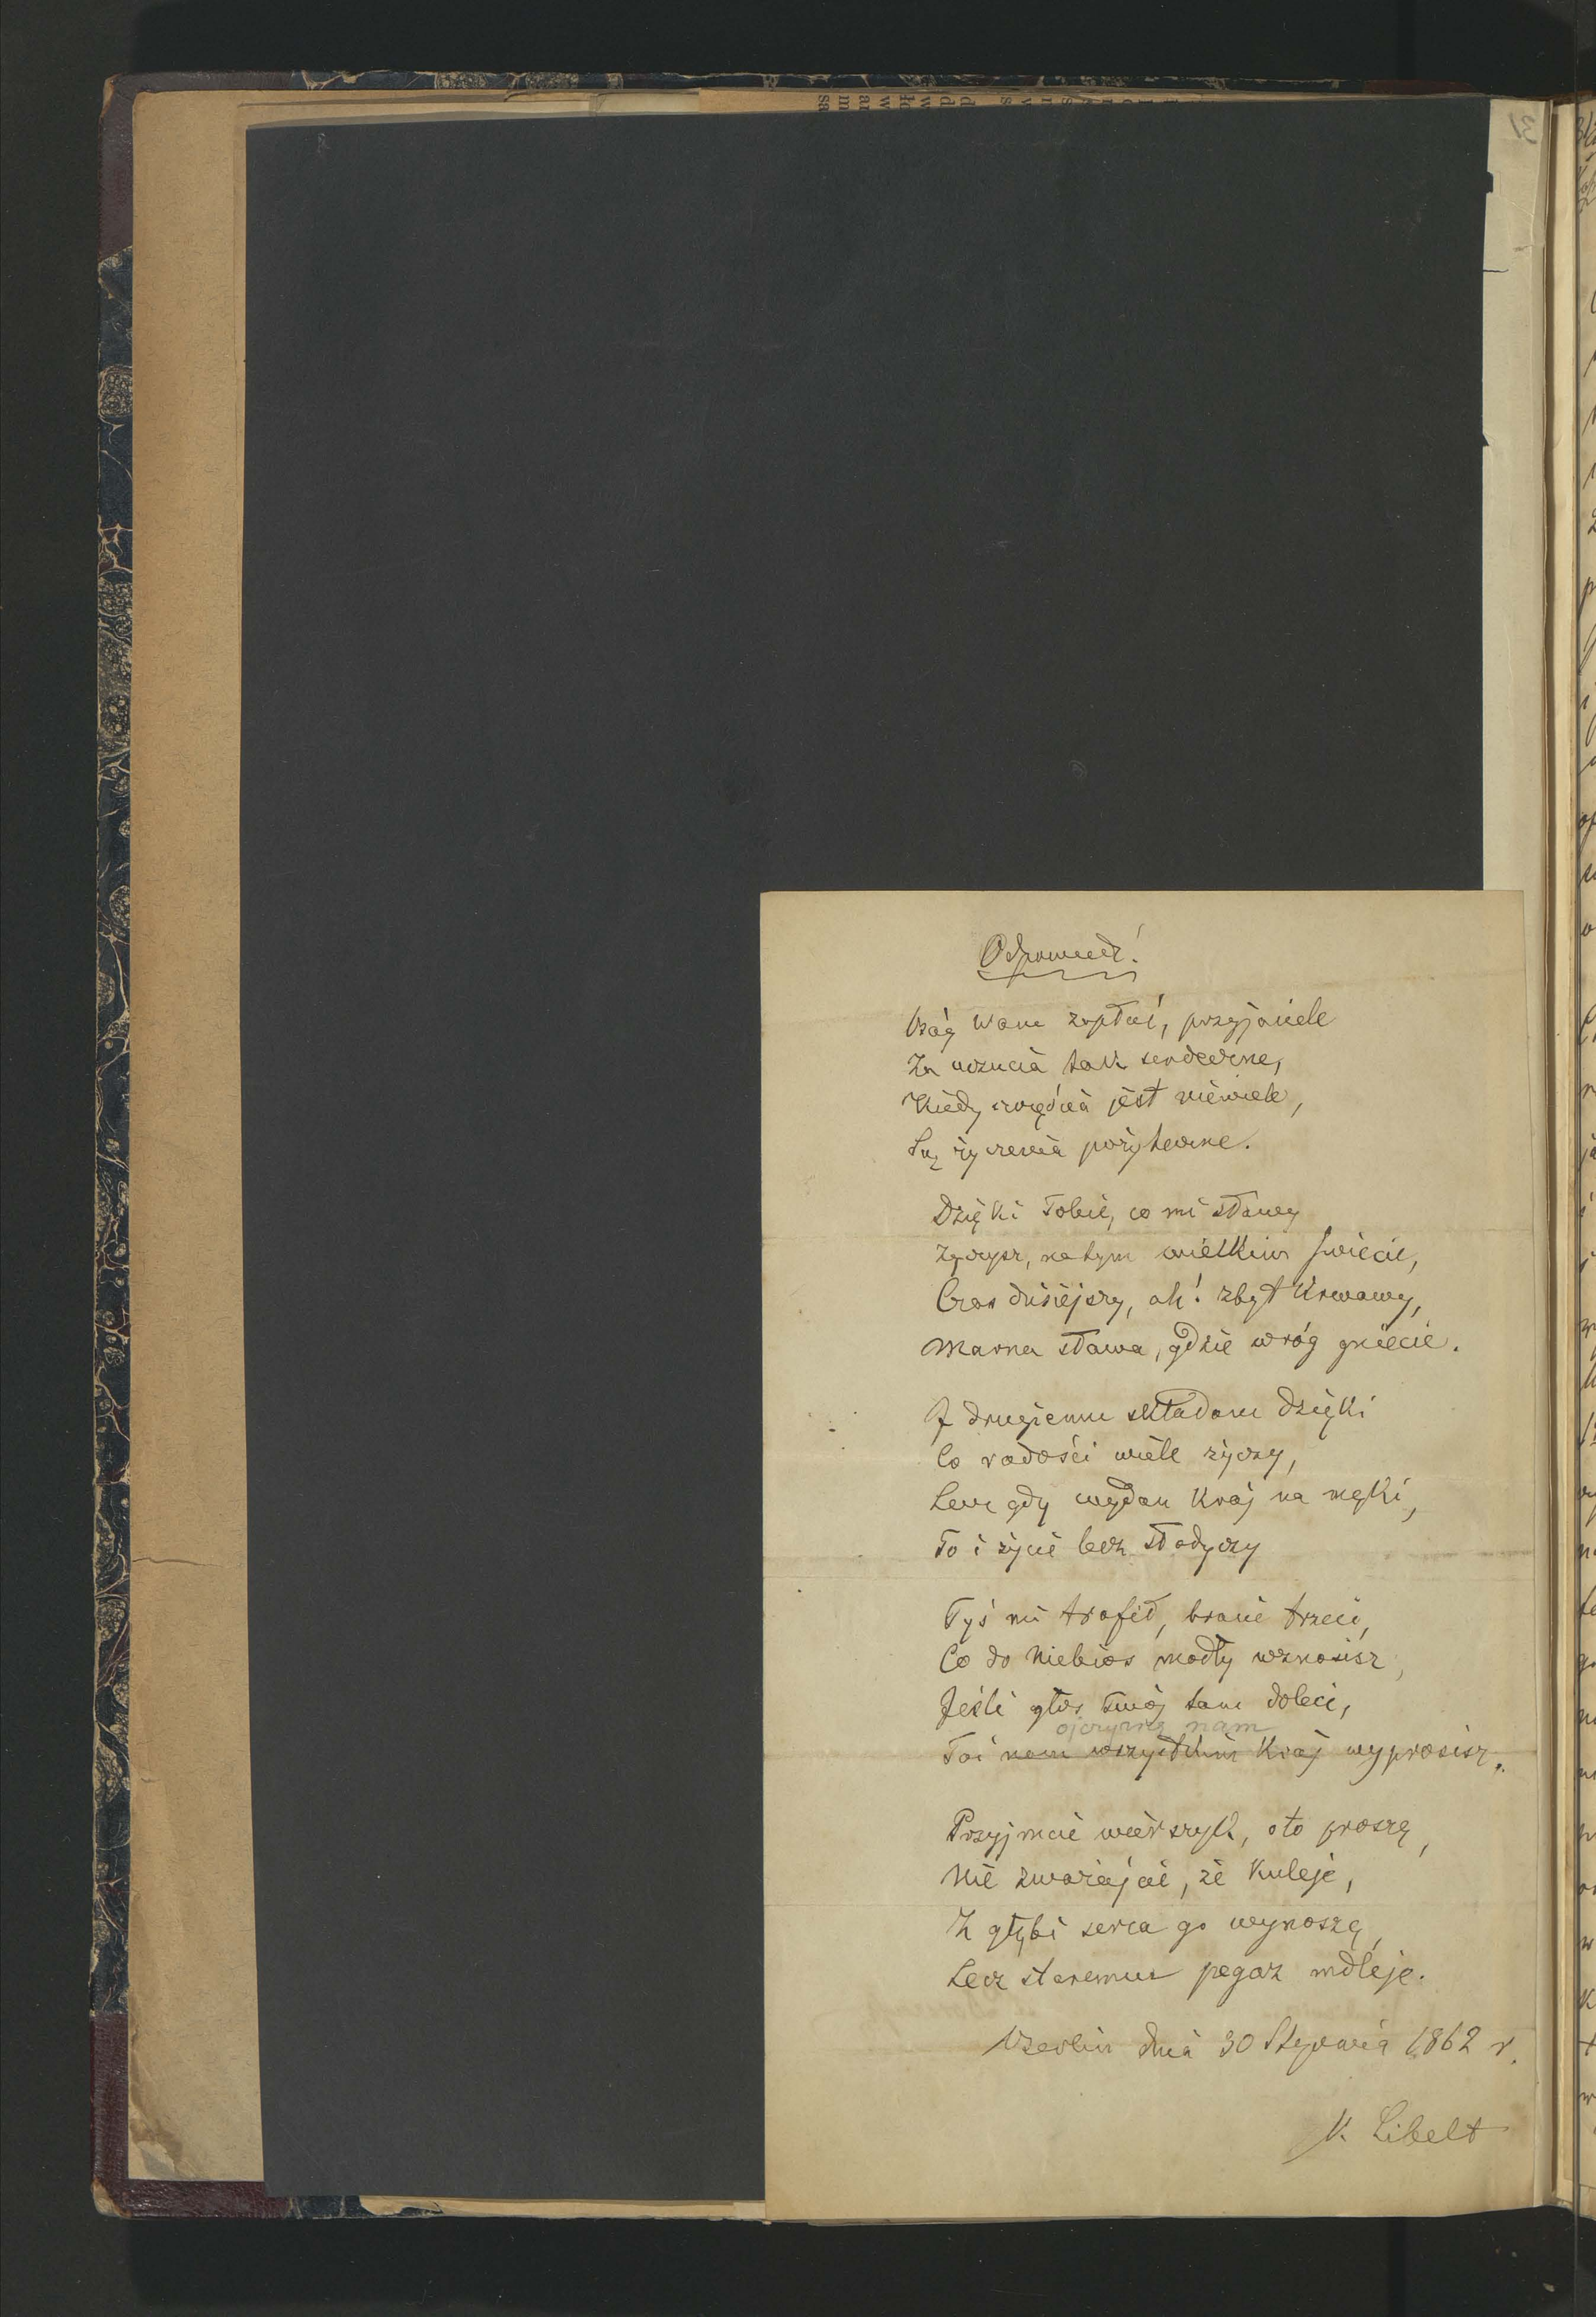 Odpowiedź!
Bóg Wam zapłać, przyjaciele
Za uczucia tak serdeczne,
Kiedy szczęścia jest niewiele,
Są życzenia pożyteczne.
Dzięki Tobie, co mi sławy
Życzysz, na tym wielkim świecie,
Czas dzisiejszy, ah! zbyt krwawy,
Marna sława, gdzie wróg gniecie.
I drugiemu składam dzięki
Co radości wiele życzy,
Lecz gdy wydan Kraj na męki,
To i życie bez słodyczy
Tyś mi trafił, bracie trzeci,
Co do Niebios modły wznosisz,
Jeśli głos twój tam doleci,
ojczyznę nam
Toć nam wszystkim Kraj wyprosisz.
Przyjmcie wierszyk, oto proszę,
Nie zważajcie, że kuleje,
Z głębi serca go wynoszę,
Lecz staremu pegaz mdleje.
Berlin dnia 30 Stycznia 1862 r.
K. Libelt
31